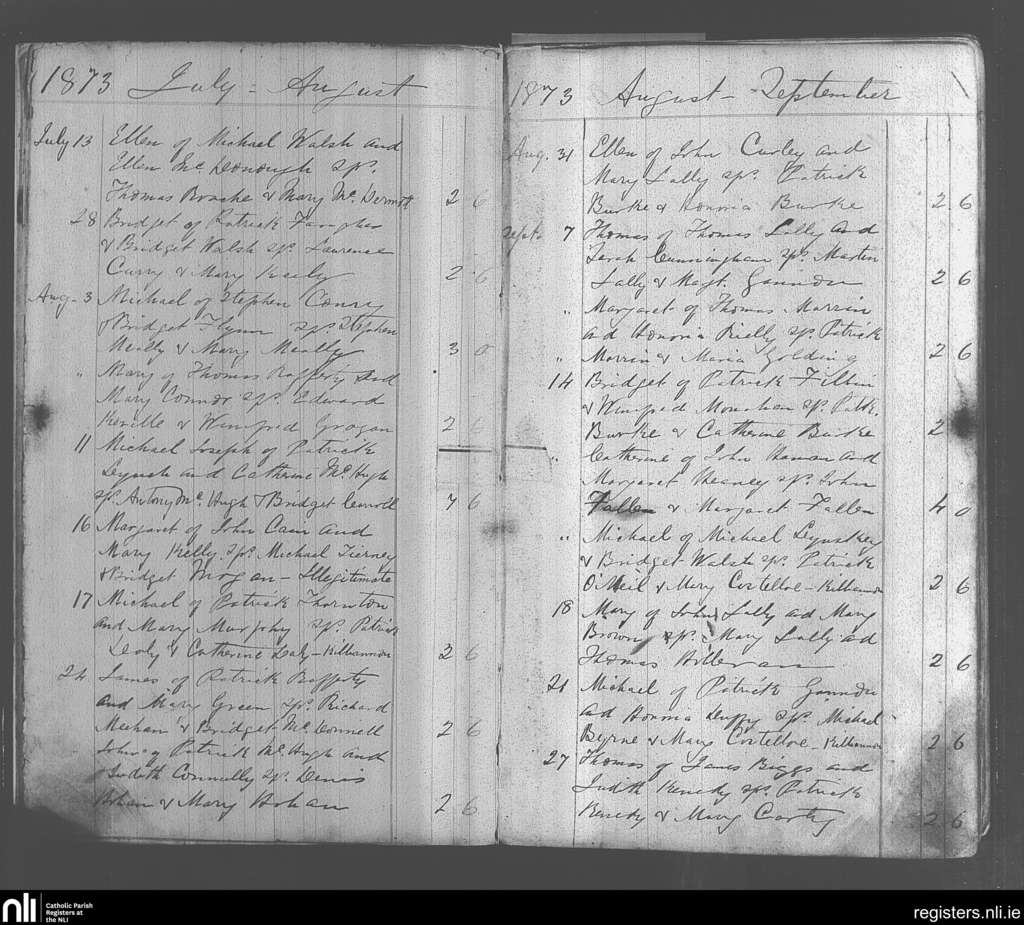 1873 July - August
July 13 Ellen of Michael Walsh and
Ellen Mc Donough sps.
Thomas Roache & Mary Mc Dermott 2 6
28 Bridget of Patrick
& Bridget Walsh sps. Laurence
Curry & Mary Kealy 2 6
Aug. 3 Michael of Stephen Conry
& Bridget Flynn sps. Stephen
Meally & Mary Meally 3 0
" Mary of Thomas Rafferty and
Mary Connor sps. Edward
Keville & Winifred Grogan 2 6
11 Michael Joseph of Patrick
Lynch and Catherine Mc Hugh
sps. Antony Mc Hugh & Bridget Carroll 7 6
16 Margaret of John Cain and
Mary Kelly. sps. Michael Tierney
& Bridget Mogan - Illegitimate
17 Michael of Patrick Thornton
and Mary Murphy sps. Patrick
& Catherine - Kilbannon 2 6
24 James of Patrick Rafferty
and Mary Green sps. Richard
Meehan & Bridget Mc Donnell 2 6
John of Patrick Mc Hugh and
Judith Connolly sps. Denis
Bohan & Mary Bohan 2 6
1873 August - September
Aug. 31 Ellen of John Curley and
Mary Lally sps. Patrick
Burke & Honoria Burke 2 6
Sept. 7 Thomas of Thomas Lally and
Sarah Cunningham sps. Martin
Lally & Magt. Gannon 2 6
" Margaret of Thomas Morrin
and Honoria Rielly sps. Patrick
" Morrin & Maria Golding 2 6
14 Bridget of Patrick Filbin
& Winifred Monahan sps. Patk.
Burke & Catherine Burke 2
" Catherine of John and
Margaret Heaney sps. John
Fallen & Margaret Fallen 4 0
" Michael of Michael Lyuskey
& Bridget Walsh sps. Patrick
O'Neil & Mary Costelloe - Kilbannon 2 6
18 Mary of John Lally and Mary
Brown sps. Mary Lally and
Thomas Holleran 2 6
21 Michael of Patrick Gannon
and Honoria Duffy sps. Michael
Byrne & Mary Costelloe - Kilbannon 2 6
27 Thomas of James Biggs and
Judith Kenedy sps. Patrick
Kenedy & Mary Carty 2 6
nli Catholic Parish
Registers at
the NLI
registers.nli.ie